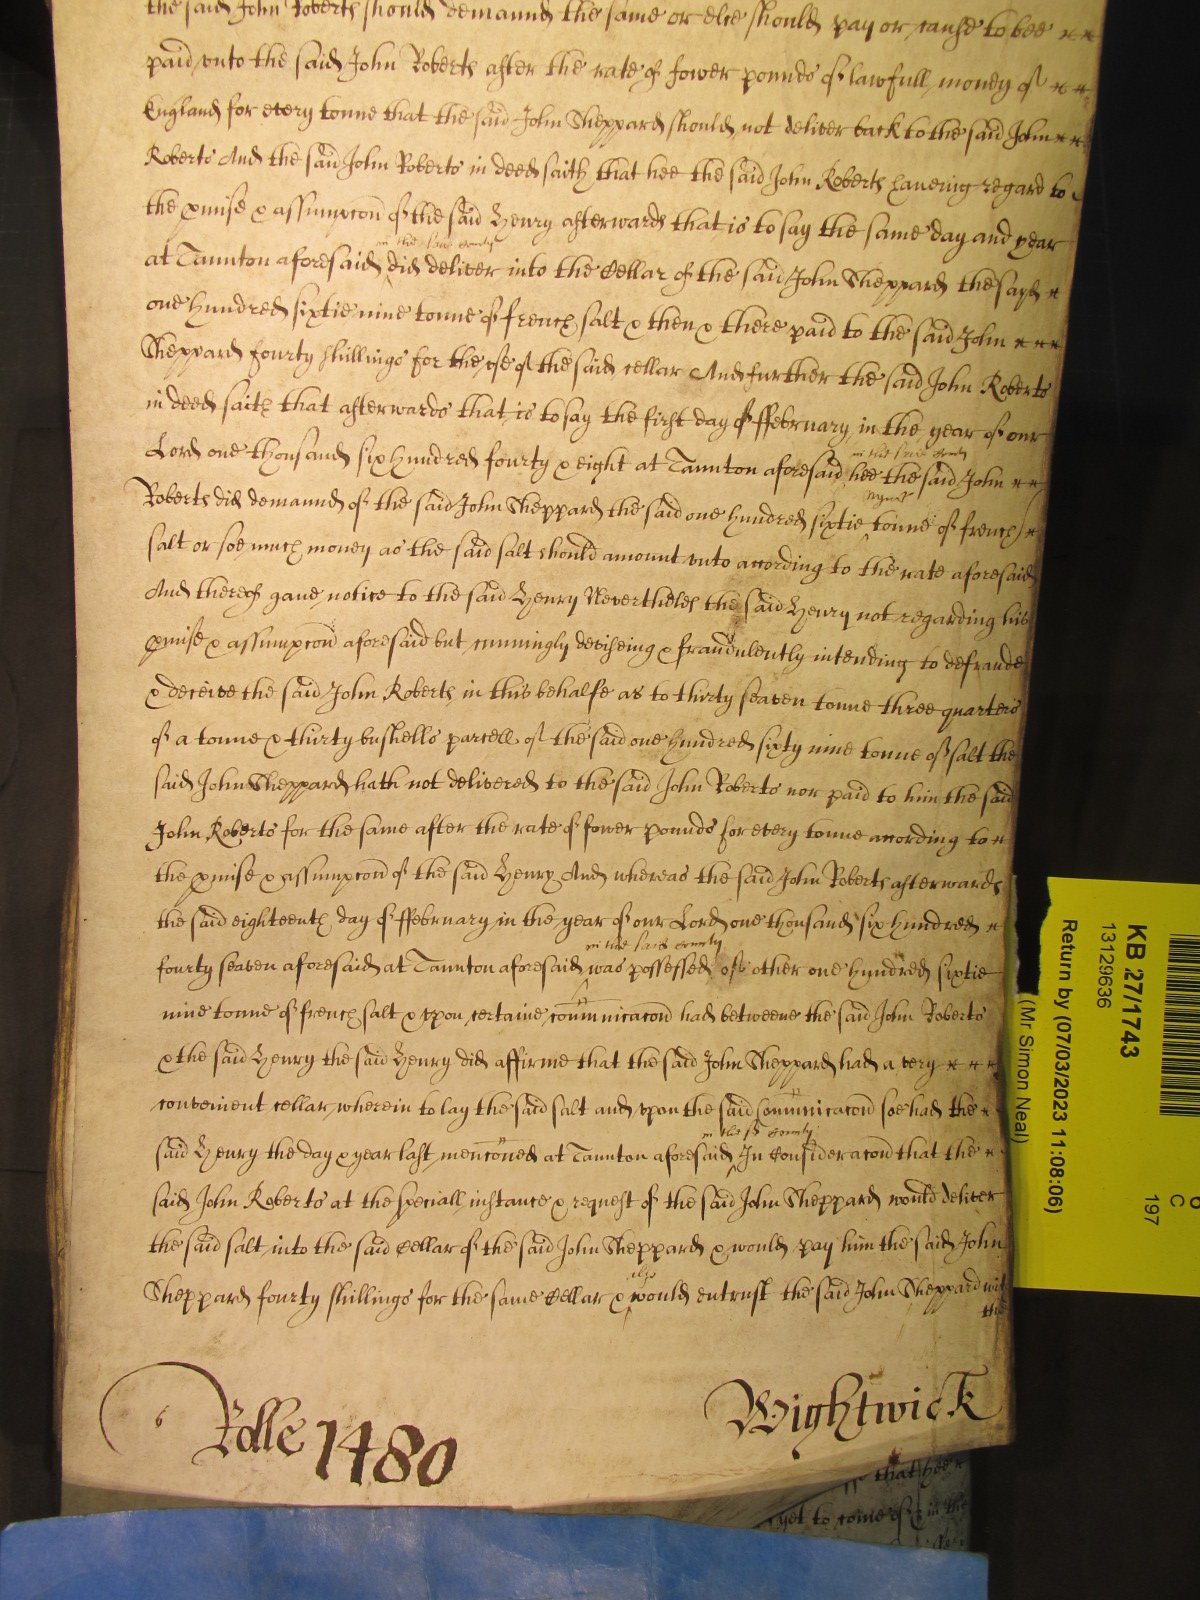 the said John Roberts should demaund the same or else should pay or cause to bee
paid vnto the said John Roberts after the rate of fower pounds of lawfull money of
England for every tonne that the said John Sheppard should not deliver back to the said John
Roberts And the said John Roberts in deed saith that hee the said John Roberts haueing regard to
the pmise & assumpcon of the said Henry afterwards that is to say the same day and year
in the said County
at Taunton aforesaid did deliver into the Cellar of the said John Sheppard the sayd
one hundred sixtie nine tonne of french salt & then & there paid to the said John
Sheppard fourty shillings for the vse of the said cellar And further the said John Roberts
in deed saith that afterwards that is to say the first day of ffebruary in the year of our
in the said County
Lord one thousand six hundred fourty & eight at Taunton aforesaid hee the said John
nyne
Roberts did demaund of the said John Sheppard the said one hundred sixtie tonne of french
salt or soe much money as the said salt should amount vnto according to the rate aforesaid
And thereof gaue notice to the said Henry Neverthelesse the said Henry not regarding his
pmise & assumpcon aforesaid but cunningly deviseing & fraudulently intending to defraude
& deceive the said John Roberts in this behalfe as to thirty seaven tonne three quarters
of a tonne & thirty bushells parcell of the said one hundred sixty nine tonne of salt the
said John Sheppard hath not delivered to the said John Roberts nor paid to him the said
John Roberts for the same after the rate of fower pounds for every tonne according to
the pmise & assumpcon of the said Henry And whereas the said John Roberts afterwards
the said eighteenth day of ffebruary in the year of our Lord one thousand six hundred
in the said County
fourty seaven aforesaid at Taunton aforesaid was possessed of other one hundred sixtie
nine tonne of french salt & vpon certaine communicacon had betweene the said John Roberts
& the said Henry the said Henry did affirme that the said John Sheppard had a very
convenient cellar wherein to lay the said salt and vpon the said communicacon soe had the
in the sd County
said Henry the day & year last menconed at Taunton aforesaid In Consideracon that the
said John Roberts at the speciall instance & request of the said John Sheppard would deliver
the said salt into the said Cellar of the said John Sheppard & would pay him the said John
also
Sheppard fourty shillings for the same Cellar & would entrust the said John Sheppard wit
the
6 Rolle 1480 Wightwick
that hee
yet to come of in the
KB 27/1743
13129636
Return by (07/03/2023 11:08:06)
(Mr Simon Neal)
C
197